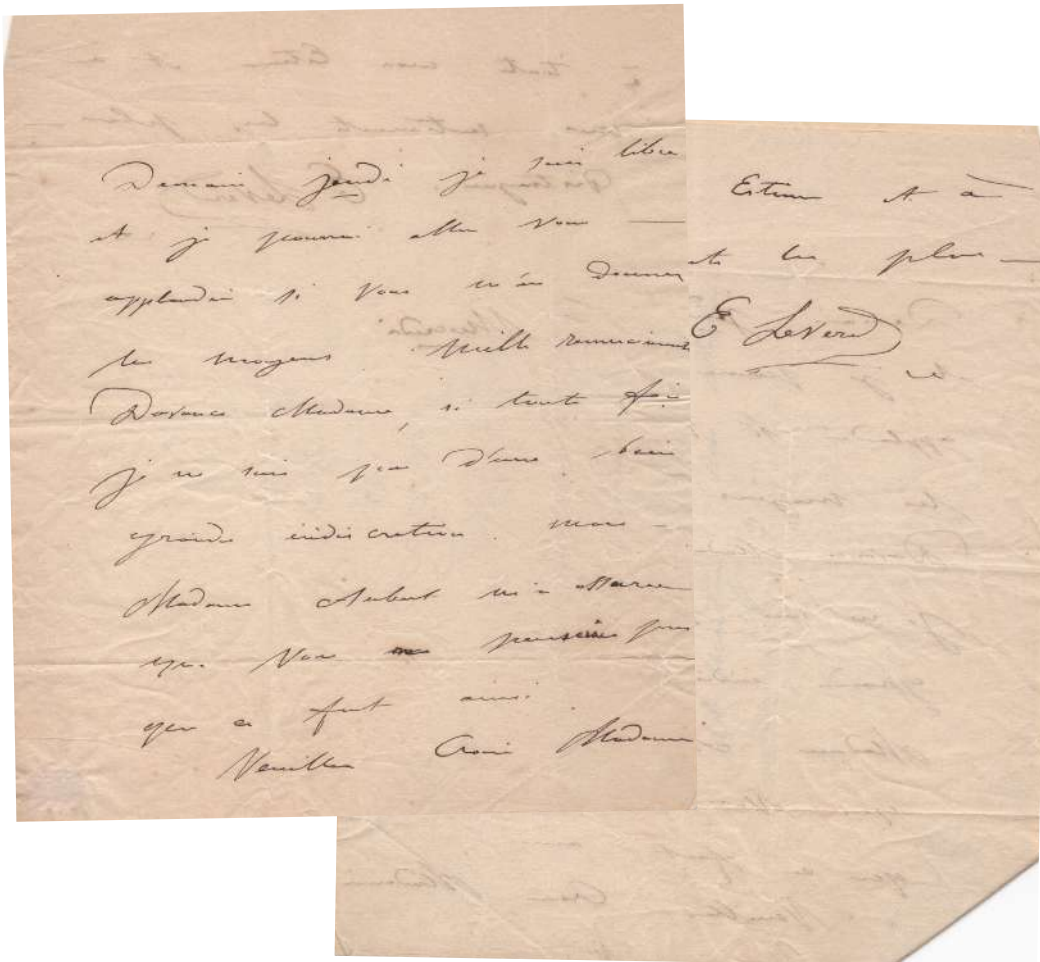 Demain jeudi je suis libre
et je pourrai aller vous
applaudir si vous m'en donnez
les moyens. Mille remerciemens
Davance Madame, si toute fois
je ne suis pas d'une bien
grande indiscretion. mais
Madame Aubert m'a assurée
que Vous ne pas
que ce fut ainsi
Veuillez Croire Madame
Estime et à
les plus
E LeVerd